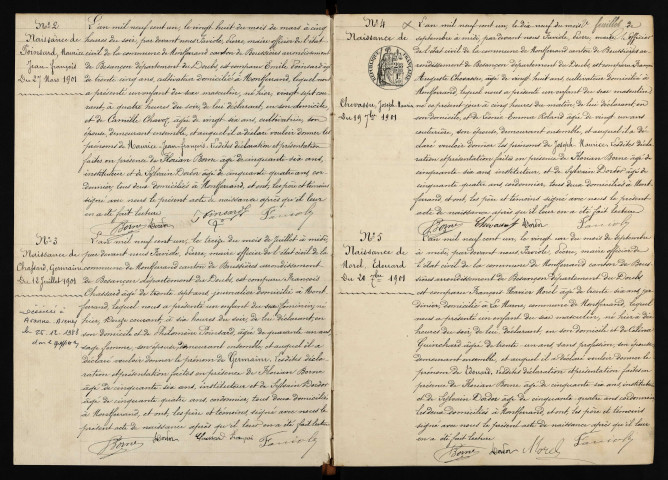 Nº 2
Naissance de
Poinsard, Maurice
Jean-François
Du 27 Mars 1901
L'an mil neuf cent un, le vingt huit du mois de mars à cinq
heures du soir, par devant nous
civil de la commune de Montferrand canton de Boussières arrondissement
de Besançon département du Doubs, est comparu Emile Poinsard âgé
de trente cinq ans, cultivateur domicilié à Montferrand, lequel nous
a présenté un enfant du sexe masculin, né hier, vingt sept cou-
rant, à quatre heures du soir, de lui déclarant, en son domicile
et de Camille Chavoz, âgée de vingt six ans, cultivatrice, son
épouse, demeurant ensemble, et auquel il a déclaré vouloir donner les
prénoms de Maurice Jean-François. Lesdites déclaration et présentation
faites en présence de Florian Borne âgé de cinquante six ans,
instituteur et de Sylvain Dodor âgé de cinquante quatre ans cor-
donnier, tous deux domiciliés à Montferrand, et ont, les père et témoins
signé avec nous le présent acte de naissance après qu'il leur
en a été fait lecture
Borne Poinsard
Nº 3
Naissance de
Germaine
Du 12 Juillet 1901
Décédée à
le 25.12.1981
L'an mil neuf cent un, le treize du mois de Juillet à midi,
par devant nous maire officier de l'état civil de la
commune de Montferrand canton de Boussières arrondissement
de Besançon département du Doubs, est comparu François
âgé de trente sept ans journalier domicilié à Mont-
ferrand, lequel nous a présenté un enfant du sexe féminin, née
hier, douze courant, à six heures du soir, de lui déclarant, en
son domicile et de Philomène Poinsard, âgée de quarante un ans,
sage femme, son épouse, demeurant ensemble, et auquel il a
déclaré vouloir donner le prénom de Germaine. Lesdites décla-
ration et présentation faites en présence de Florian Borne
âgé de cinquante six ans, instituteur et de Sylvain Dodor
âgé de cinquante quatre ans, cordonnier, tous deux domiciliés
à Montferrand, et ont, les père et témoins signé avec nous le
présent acte de naissance après qu'il leur en a été fait lecture
Borne François
Nº 4
Naissance de
Joseph Maurice
Du 19 7bre 1901
2e feuillet
L'an mil neuf cent un, le dix neuf du mois de
septembre à midi, par devant nous maire officier
de l'état civil de la commune de Montferrand canton de Boussières ar-
rondissement de Besançon département du Doubs, est comparu François
Auguste âgé de vingt huit ans, cultivateur domicilié à
Montferrand, lequel nous a présenté un enfant du sexe masculin,
né ce présent jour à cinq heures du matin, de lui déclarant en
son domicile, et de Léonie Emma Roland âgée de vingt un ans
son épouse, demeurant ensemble, et auquel il a dé-
claré vouloir donner les prénoms de Joseph Maurice. Lesdites décla-
ration et présentation faites en présence de Florian Borne âgé de
cinquante six ans instituteur et de Sylvain Dodor âgé de
cinquante quatre ans cordonnier, tous deux domiciliés à Mont-
ferrand, et ont, les père et témoins signé avec nous le présent
acte de naissance après qu'il leur en a été fait lecture
Borne
Nº 5
Naissance de
Morel, Edouard
Du 20 7bre 1901
L'an mil neuf cent un, le vingt un du mois de septembre
à midi, par devant nous maire officier de
l'état civil de la commune de Montferrand canton de Boussières
arrondissement de Besançon département du Doubs, est
comparu François Xavier Morel âgé de trente six ans,
domicilié à commune de Montferrand, lequel
nous a présenté un enfant du sexe masculin, né hier à dix
heures du soir, de lui déclarant, en son domicile et de Célina
âgée de trente un ans, sans profession, son épouse,
demeurant ensemble, et auquel il a déclaré vouloir donner le
prénom de Edouard. Lesdites déclaration et présentation faites en
présence de Florian Borne âgé de cinquante six ans instituteur
et de Sylvain Dodor âgé de cinquante quatre ans cordonnier
tous deux domiciliés à Montferrand, et ont, les père et témoins
signé avec nous le présent acte de naissance après qu'il leur
en a été fait lecture
Borne Morel